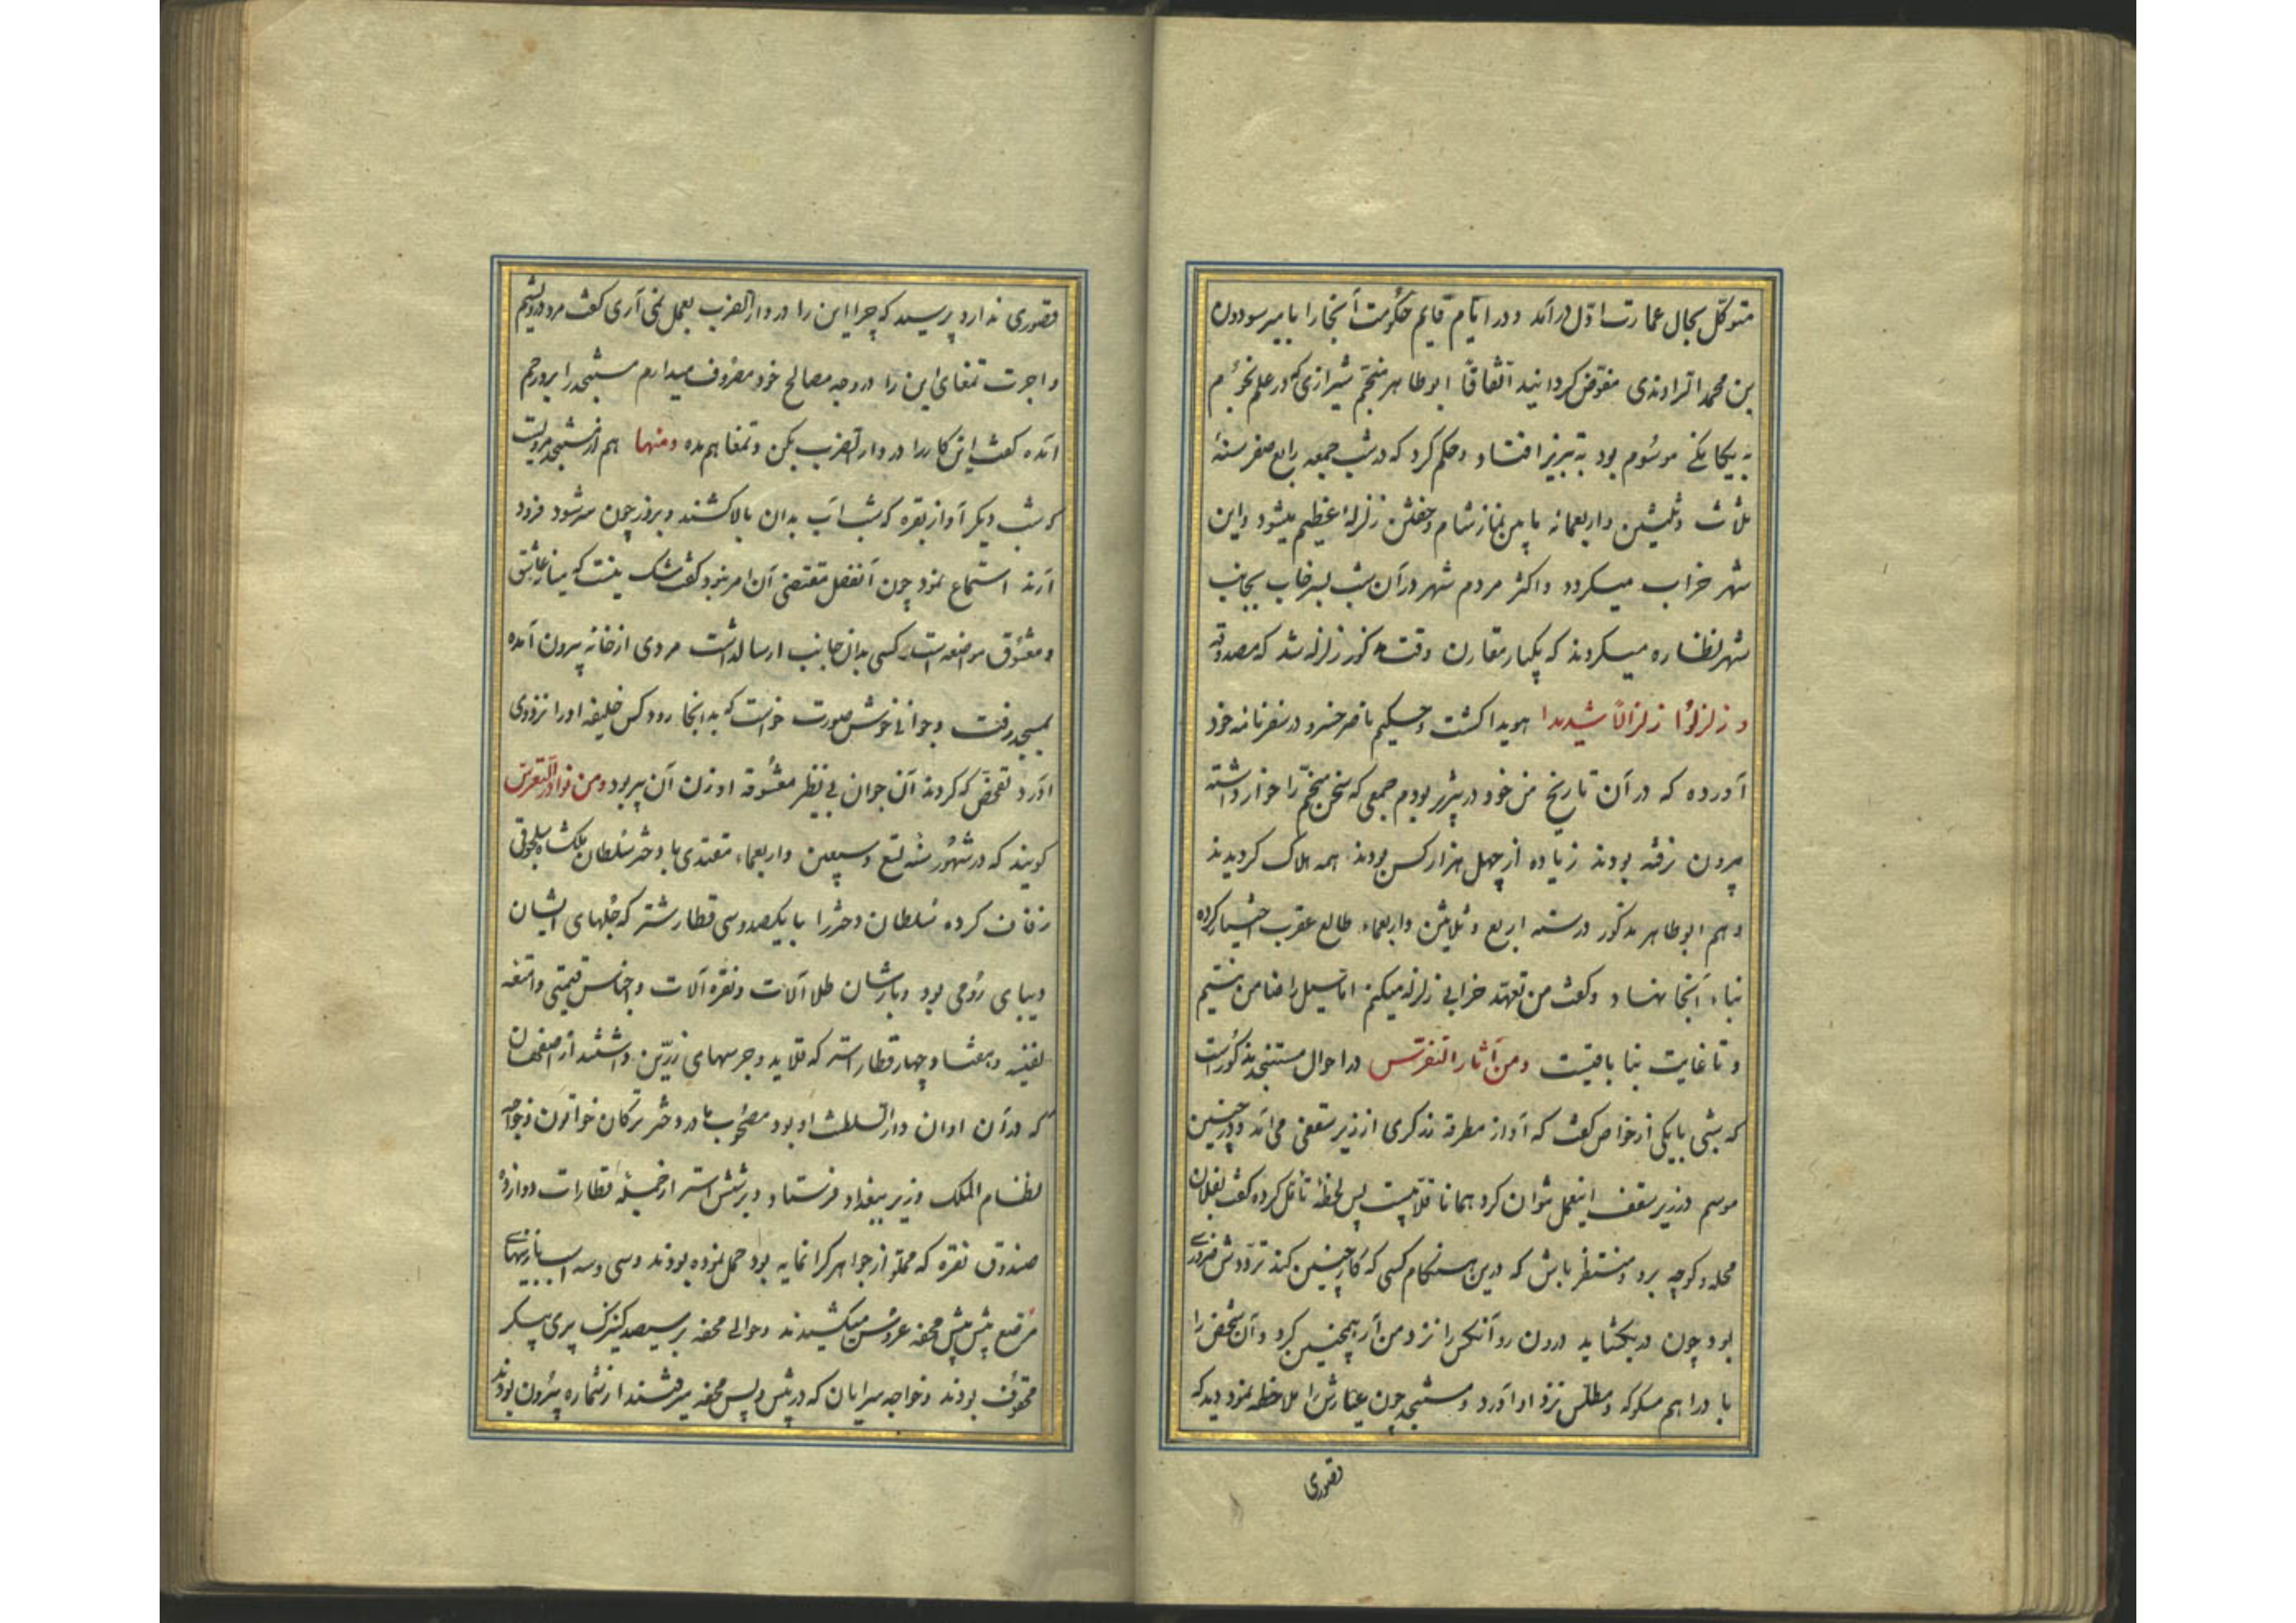 متوکل بحال عمارت اول درآمد و در ایام قایم حکومت آنجا را بامیر سودون
بن محمد الراوندی مفوض کردانید اتفاقاً ابوطاهر منجم شیرازی که در علم نجوم
به بیکانکی موسوم بود به تبریز افتاد و حکم کرد که در شب جمعه رابع صفر سنهٔ
ثلاث و ثلثین و اربعمائه مابین نماز شام و خفتن زلزلهٔ عظیم میشود و این
شهر خراب میکردد و اکثر مردم شهر در آن شب بسرخاب بجانب
شهر نظاره میکردند که یکبار مقارن وقت مذکور زلزله شد که مصدوقه
و زلزلوا زلزالاً شدیدا هویدا کشت و حکیم ناصر خسرو در سفرنامه خود
آورده که در آن تاریخ من خود در تبریز بودم جمعی که سخن منجم را خوار داشته
بیرون نرفته بودند زیاده از چهل هزار کس بودند همه هلاک کردیدند
و هم ابوطاهر مذکور در سنه اربع و ثلاثین و اربعماء طالع عقرب اختیار کرده
بناء آنجا نهاد و کفت من تعهد خرابی زلزله میکنم اما سیل را ضامن نیستم
و تا غایت بنا باقیست ومن آثار التفرس در احوال مستنجد مذکورست
که شبی با یکی از خواص کفت که آواز مطرقه زرکری از زیر سقفی می‌آید و در چنین
موسم در زیر سقف اینعمل نتوان کرد همانا قلابیست پس لحظهٔ تامل کرده کفت بفلان
محله و کوچه برو و منتظر باش که درین هنکام کسی که کار چنین کند ترددش ضروری
بود چون در بکشاید درون رو آنکس را نزد من آر همچنین کرد و آن شخص را
با دراهم مسکوکه و مطلس نزد او آورد و مستنجد چون عیارش را ملاحظه نمود دید که
قصوری
قصوری ندارد پرسید که چرا این را در دار الضرب بعمل نمی آری کفت مرد درویشم
و اجرت تمغای این را در وجه مصالح خود مصروف میدارم مستنجد را برو رحم
آمده کفت این کار را در دار الضرب بکن و تمغا هم مده ومنها هم از مستنجد مرویست
که شب دیکر آواز بقره که شب آب بدان بالا کشند و بروز چون سر شود فرود
آرند استماع نمود چون آنفصل مقتضی آن امر نبود کفت شک نیست که میان عاشق
و معشوق مواضعه است کسی بدان جانب ارسال داشت مردی از خانه بیرون آمده
بمسجد رفت و جوانی خوش صورت خواست که بدانجا رود کس خلیفه او را نزد وی
آورد تفحص که کردند آن جوان بی نظر معشوقه او زن آن پیر بود ومن نوادر التعرس
کویند که در شهور سنه تسع و سبعین و اربعماء مقتدی با دختر سلطان ملکشاه سلجوقی
زفاف کرده سلطان دختر را با یکصد و سی قطار شتر که جلهای ایشان
دیبای رومی بود و بارشان طلا آلات و نقره آلات و اجناس قیمتی و امتعه
نفیسه و هفتاد و چهار قطار استر که قلاید و جرسهای زرین داشتند از اصفهان
که در آن اوان دار السلطنت او بود مصحوب مادر دختر ترکان خواتون و خواجه
نظام الملک وزیر ببغداد فرستاد و بر شش استر از جملهٔ قطارات دوازده
صندوق نقره که مملو از جواهر کرانمایه بود حمل نموده بودند و سی و سه اسب با زینهای
مرصع پیش پیش محفه عروس میکشیدند و حوالی محفه بر سیصد کنیزک پری پیکر
محفوف بودند و خواجه سرایان که در پیش و پس محفه میرفتند از شماره بیرون بودند